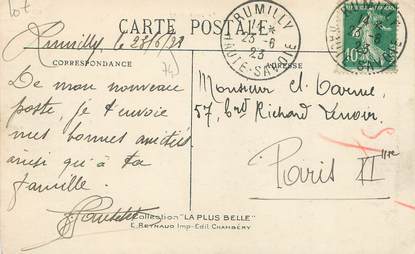 Lot
CARTE POSTALE
RUMILLY
23-6
23
HAUTE-SAVOIE
10c
Rumilly, le 23/6/23
74
CORRESPONDANCE
ADRESSE
De mon nouveau
poste, je t'envoie
mes bonnes amitiés
ainsi qu'à ta
famille.
Monsieur et
57, bret Richard Lenoir
Paris XI
Collection "LA PLUS BELLE"
E. REYNAUD Imp-Edit. CHAMBÉRY